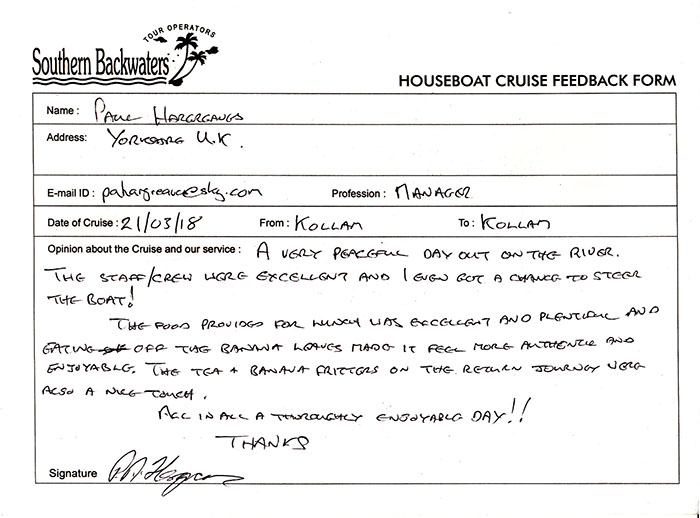 TOUR OPERATORS
Southern Backwaters
HOUSEBOAT CRUISE FEEDBACK FORM
Name : PAUL HARGREAVES
Address: YORKSHIRE U.K.
E-mail ID : pahargreave@sky.com Profession : MANAGER
Date of Cruise : 21/03/18 From : KOLLAM To : KOLLAM
Opinion about the Cruise and our service : A VERY PEACEFUL DAY OUT ON THE RIVER.
THE STAFF/CREW WERE EXCELLENT AND I EVEN GOT A CHANCE TO STEER
THE BOAT!
THE FOOD PROVIDED FOR LUNCH WAS EXCELLENT AND PLENTIFUL AND
EATING OFF THE BANANA LEAVES MADE IT FEEL MORE AUTHENTIC AND
ENJOYABLE. THE TEA + BANANA FRITTERS ON THE RETURN JOURNEY WERE
ALSO A NICE TOUCH.
ALL IN ALL A THOROUGHLY ENJOYABLE DAY!!
THANKS
Signature